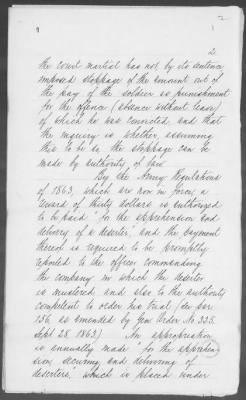 2
2
the court martial has not by its sentence
imposed stoppage of the amount out of
the pay of the soldier as punishment
for the offence (absence without leave)
of which he was convicted, and that
the inquiry is whether, assuming
this to be so, the stoppage can be
made by authority of law.
By the Army Regulations
of 1863, which are now in force, a
reward of thirty dollars is authorized
to be paid "for the apprehension and
delivery of a deserter," and the payment
thereof is required to be promptly
reported to the officer commanding
the company in which the deserter
is mustered and also to the authority
competent to order his trial (see par
156 as amended by Gen Order No 325.
Sept 28. 1863.) An appropriation
is annually made "for the apprehen-
sion, securing and delivering of
deserters," which is placed under